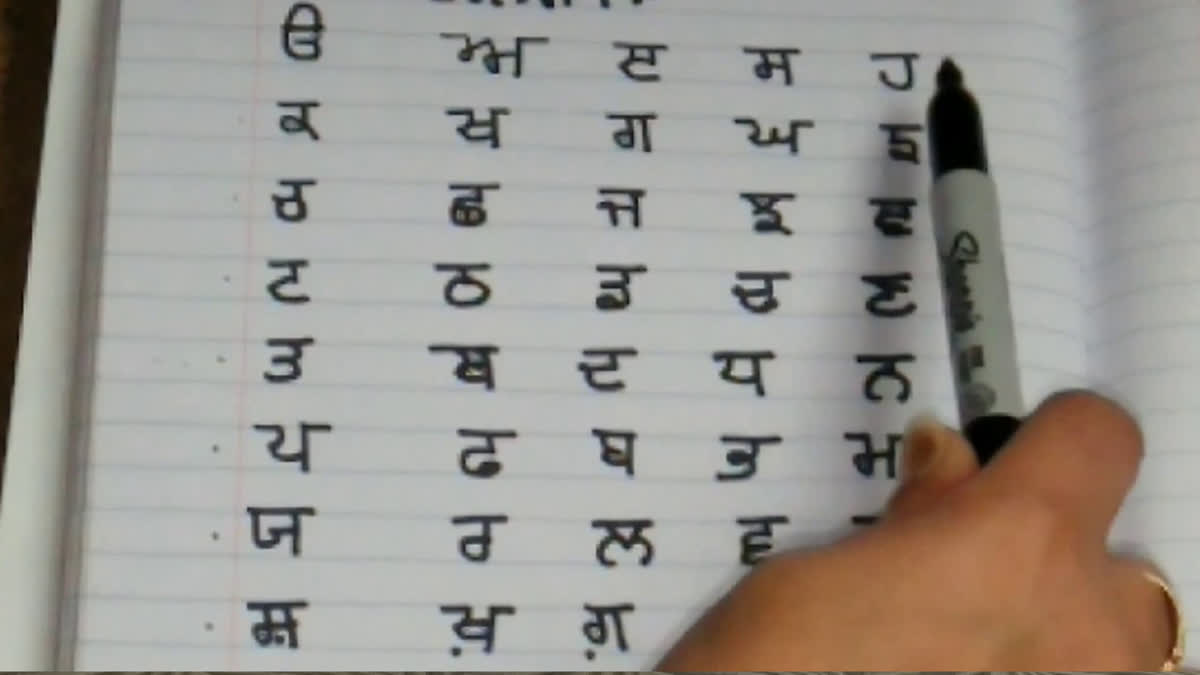 ੳ ਅ ੲ ਸ ਹ
ਕ ਖ ਗ ਘ ਙ
ਚ ਛ ਜ ਝ ਞ
ਟ ਠ ਡ ਢ ਣ
ਤ ਥ ਦ ਧ ਨ
ਪ ਫ ਬ ਭ ਮ
ਯ ਰ ਲ ਵ
ਸ਼ ਖ਼ ਗ਼
Sharpie